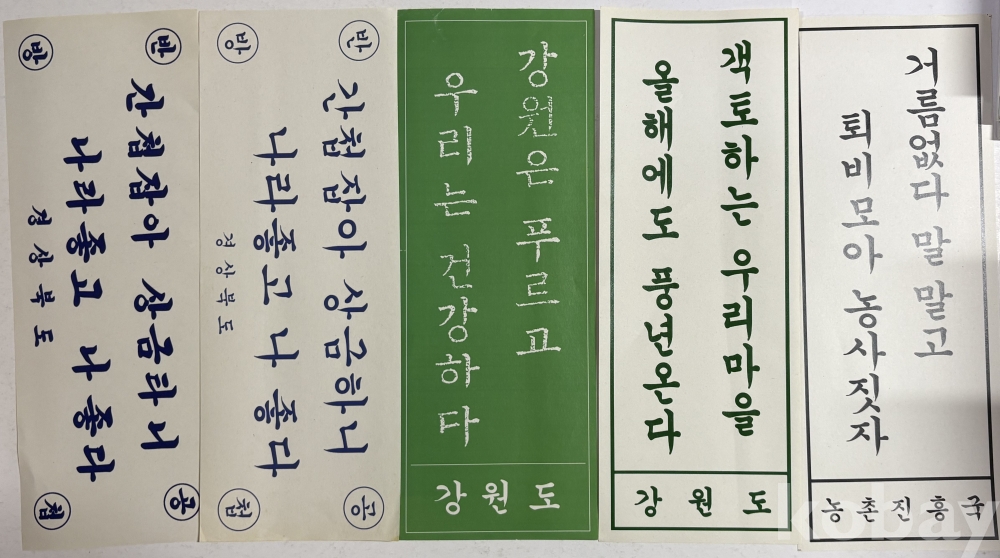 반공
방첩
간첩잡아 상금타니
나라좋고 나 좋다
경상북도
반공
방첩
간첩잡아 상금타니
나라좋고 나 좋다
경상북도
강원은 푸르고
우리는 건강하다
강원도
객토하는 우리마을
올해에도 풍년온다
강원도
거름없다 말 말고
퇴비모아 농사짓자
농촌진흥국
kobay